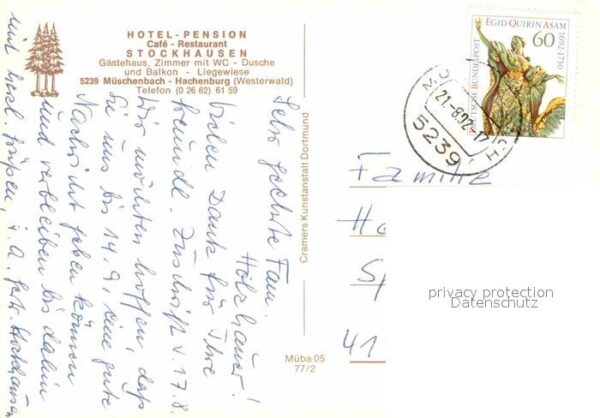 HOTEL-PENSION
Café - Restaurant
STOCKHAUSEN
Gästehaus, Zimmer mit WC - Dusche
und Balkon - Liegewiese
5239 Müschenbach - Hachenburg (Westerwald)
Telefon (0 26 62) 61 59
Sehr geehrte Fam.
Holzhauer!
Vielen Dank für Ihre
freundl. Zuschrift v. 17.8.
Wir möchten hoffen, daß
Sie uns bis 14.9. eine gute
Nachricht geben können
und verbleiben bis dahin
mit herzl. Grüßen, i. A. Stockhausen
Cramers Kunstanstalt Dortmund
Müba 05
77/2
EGID QUIRIN ASAM
1692-1750
60
DEUTSCHE BUNDESPOST
21.-8.92-17
5239
Familie
Ho
Sp
41
privacy protection
Datenschutz